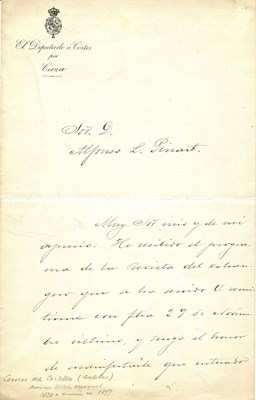 El Diputado á Córtes
por
Cieza
Sor. D.
Alfonso L. Pinart.
Muy Sor mio y de mi
aprecio: He recibido el progra-
ma de la Revista del extran-
gero que se ha servido V. remi-
tirme con fha 27 de Noviem-
bre ultimo, y tengo el honor
de manifestarle que enterado
Canovas del Castillo (Antonio)